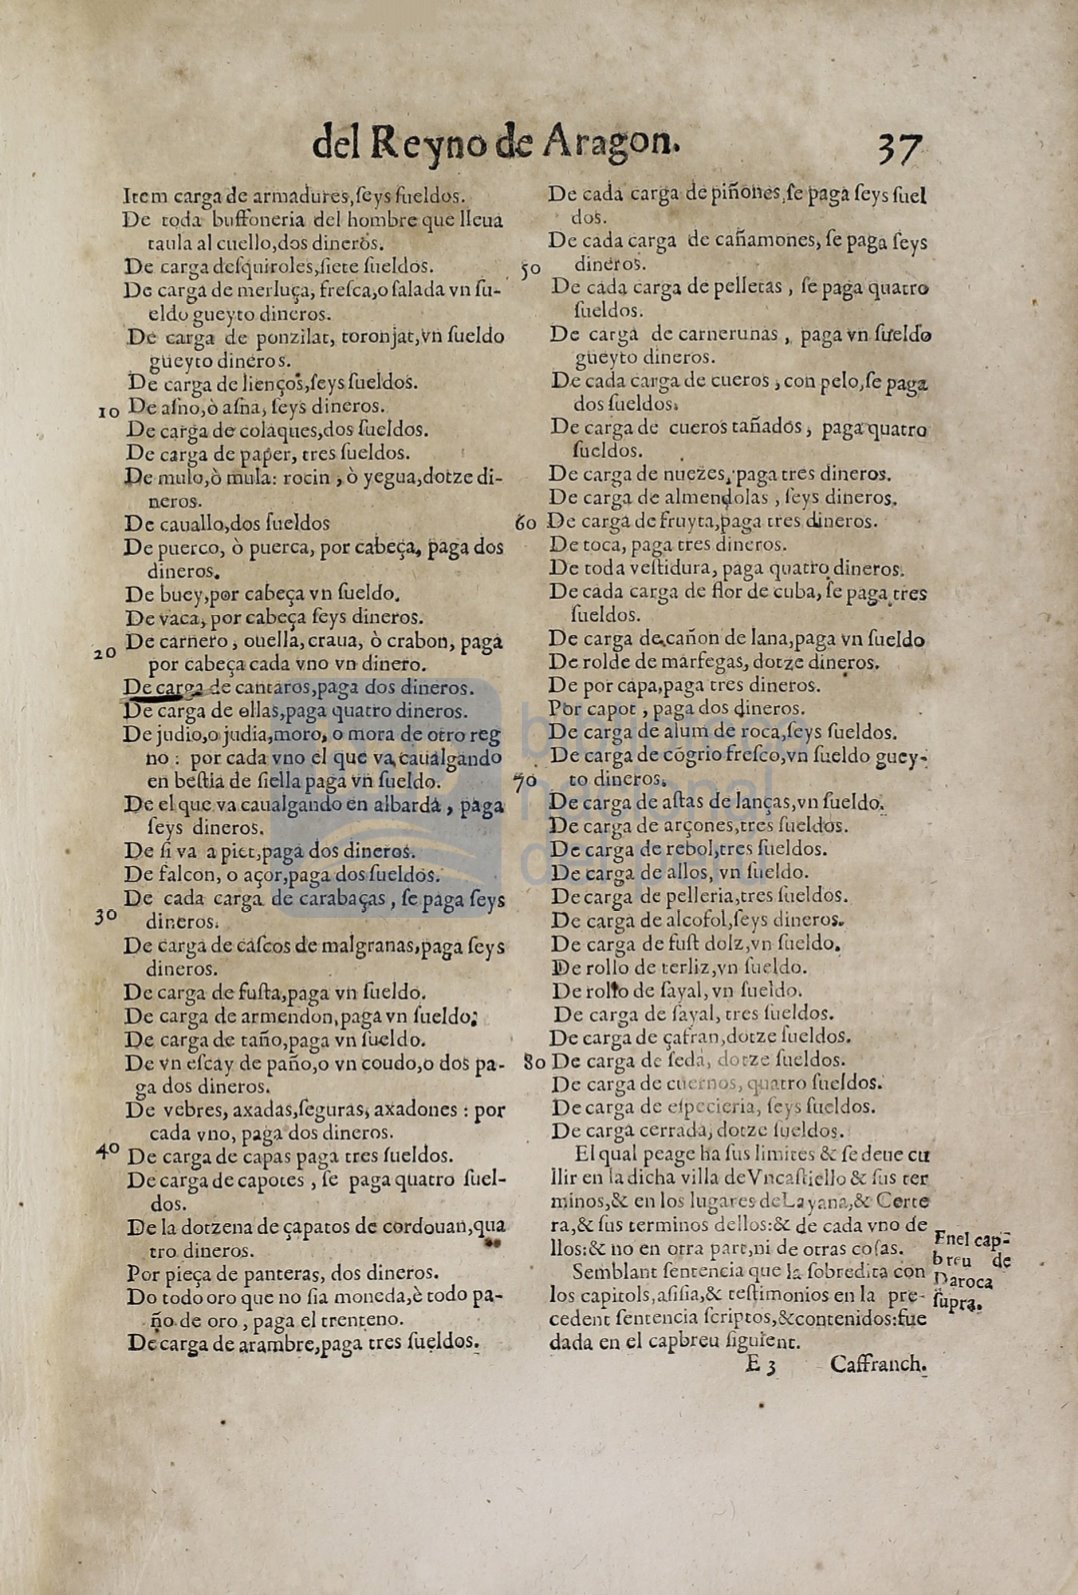 del Reyno de Aragon. 37
Item carga de armadures,ſeys ſueldos.
De toda buffoneria del hombre que lleua
taula al cuello,dos dineros.
De carga deſquiroles,ſiete ſueldos.
De carga de merluça, freſca,o ſalada vn ſu-
eldo gueyto dineros.
De carga de ponzilat, toronjat,vn ſueldo
gueyto dineros.
De carga de lienços,ſeys ſueldos.
10 De aſno,ò aſna, ſeys dineros.
De carga de colaques,dos ſueldos.
De carga de paper, tres ſueldos.
De mulo,ò mula: rocin, ò yegua,dotze di-
neros.
De cauallo,dos ſueldos
De puerco, ò puerca, por cabeça, paga dos
dineros.
De buey,por cabeça vn ſueldo.
De vaca, por cabeça ſeys dineros.
20 De carnero, ouella, craua, ò crabon, paga
por cabeça cada vno vn dinero.
De carga de cantaros,paga dos dineros.
De carga de ollas,paga quatro dineros.
De judio,o judia,moro, o mora de otro reg
no: por cada vno el que va caualgando
en beſtia de ſiella paga vn ſueldo.
De el que va caualgando en albarda, paga
ſeys dineros.
De ſi va a piet,paga dos dineros.
De falcon, o açor,paga dos ſueldos.
De cada carga de carabaças, ſe paga ſeys
30 dineros.
De carga de caſcos de malgranas,paga ſeys
dineros.
De carga de fuſta,paga vn ſueldo.
De carga de armendon,paga vn ſueldo;
De carga de taño,paga vn ſueldo.
De vn eſcay de paño,o vn coudo,o dos pa-
ga dos dineros.
De vebres, axadas,ſeguras, axadones: por
cada vno, paga dos dineros.
40 De carga de capas paga tres ſueldos.
De carga de capotes, ſe paga quatro ſuel-
dos.
De la dotzena de çapatos de cordouan,qua
tro dineros.
Por pieça de panteras, dos dineros.
Do todo oro que no ſia moneda,è todo pa-
ño de oro, paga el trenteno.
De carga de arambre,paga tres ſueldos.
De cada carga de piñones,ſe paga ſeys ſuel
dos.
De cada carga de cañamones, ſe paga ſeys
50 dineros.
De cada carga de pelletas, ſe paga quatro
ſueldos.
De carga de carnerunas, paga vn ſueldo
gueyto dineros.
De cada carga de cueros, con pelo,ſe paga
dos ſueldos.
De carga de cueros tañados, paga quatro
ſueldos.
De carga de nuezes, paga tres dineros.
De carga de almendolas, ſeys dineros.
60 De carga de fruyta,paga tres dineros.
De toca, paga tres dineros.
De toda veſtidura, paga quatro dineros.
De cada carga de flor de cuba, ſe paga tres
ſueldos.
De carga de cañon de lana,paga vn ſueldo
De rolde de marfegas, dotze dineros.
De por capa,paga tres dineros.
Por capot, paga dos dineros.
De carga de alum de roca,ſeys ſueldos.
De carga de cõgrio freſco,vn ſueldo guey-
70 to dineros.
De carga de aſtas de lanças,vn ſueldo.
De carga de arçones,tres ſueldos.
De carga de rebol,tres ſueldos.
De carga de allos, vn ſueldo.
De carga de pelleria,tres ſueldos.
De carga de alcofol,ſeys dineros.
De carga de fuſt dolz,vn ſueldo.
De rollo de terliz,vn ſueldo.
De rollo de ſayal, vn ſueldo.
De carga de ſayal, tres ſueldos.
De carga de çafran,dotze ſueldos.
80 De carga de ſeda, dotze ſueldos.
De carga de cuernos, quatro ſueldos.
De carga de eſpecieria, ſeys ſueldos.
De carga cerrada, dotze ſueldos.
El qual peage ha ſus limites & ſe deue cu
llir en la dicha villa de Vncaſtiello & ſus ter
minos,& en los lugares de Layana,& Certe
ra,& ſus terminos dellos:& de cada vno de
llos:& no en otra part,ni de otras coſas.
Semblant ſentencia que la ſobredita con
los capitols,aſiſia,& teſtimonios en la pre-
cedent ſentencia ſcriptos,&contenidos:fue
dada en el capbreu ſiguient.
Enel cap-
breu de
Daroca
ſupra.
E 3 Caffranch.
biblioteca
nacional
del perú